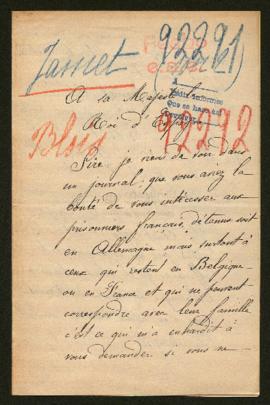 Jamet
92891
A sa Majesté le
Roi d'Espagne
Blois
92292
Sire, je viens de voir dans
un journal, que vous avez la
bonté de vous intéresser aux
prisonniers français, détenus soit
en Allemagne mais surtout à
ceux qui restent en Belgique
ou en France et qui ne peuvent
correspondre avec leur famille
c'est ce qui m'a enhardit à
vous demander si vous ne